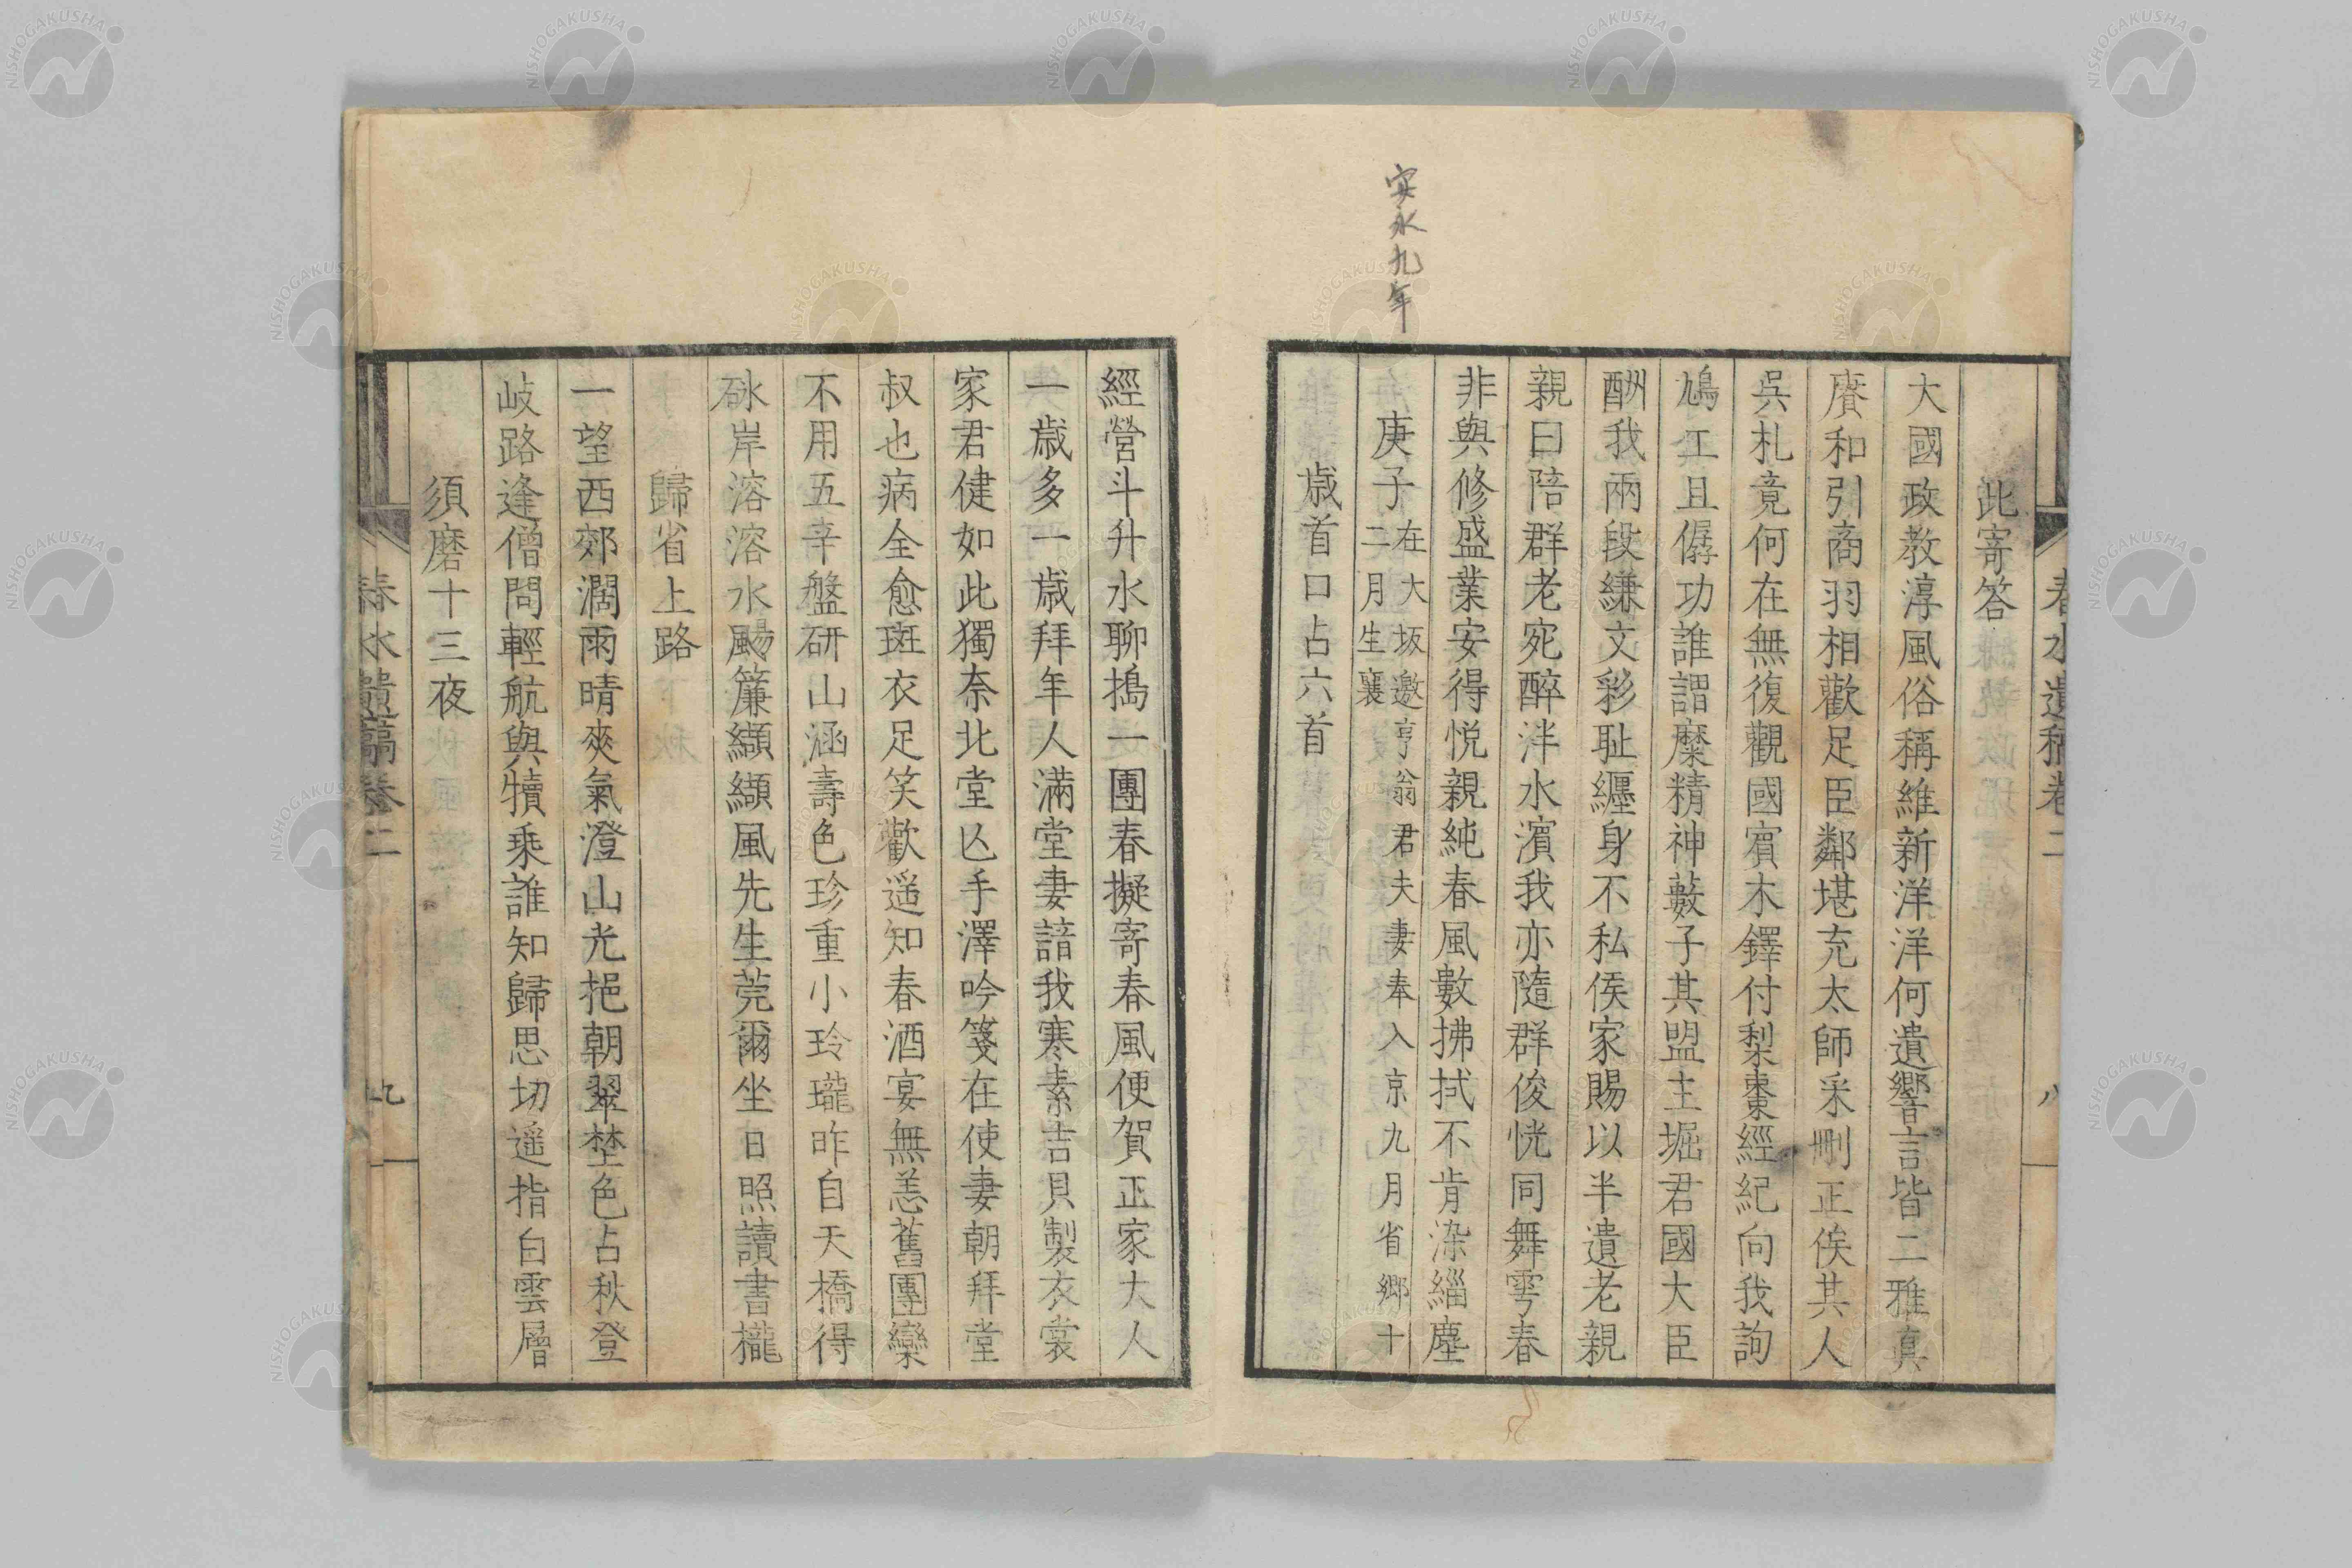 安永九年
春水遺稿卷二
八
此寄答
大國政教淳風俗稱維新洋洋何遺響言皆二雅真
賡和引商羽相歡足臣鄰堪充太師采刪正俟其人
吳札竟何在無復觀國賓木鐸付梨棗經紀向我詢
鳩工且僝功誰謂糜精神藪子其盟主堀君國大臣
酬我兩段縑文彩耻纏身不私侯家賜以半遺老親
親曰陪群老宛醉泮水濱我亦隨群俊恍同舞雩春
非與修盛業安得悅親純春風數拂拭不肯染緇塵
庚子在大坂邀亨翁君夫妻奉入京九月省鄉十
二月生襄
歲首口占六首
經營斗升水聊搗一團春擬寄春風便賀正家大人
一歲多一歲拜年人滿堂妻諳我寒素吉貝製衣裳
家君健如此獨奈北堂亾手澤吟箋在使妻朝拜堂
叔也病全愈斑衣足笑歡遥知春酒宴無恙舊團欒
不用五辛盤研山涵壽色珍重小玲瓏昨自天橋得
砅岸溶溶水颺簾纈纈風先生莞爾坐日照讀書櫳
歸省上路
一望西郊濶雨晴爽氣澄山光挹朝翠埜色占秋登
岐路逢僧問輕航與犢乘誰知歸思切遥指白雲層
須磨十三夜
春水遺稿卷二
九